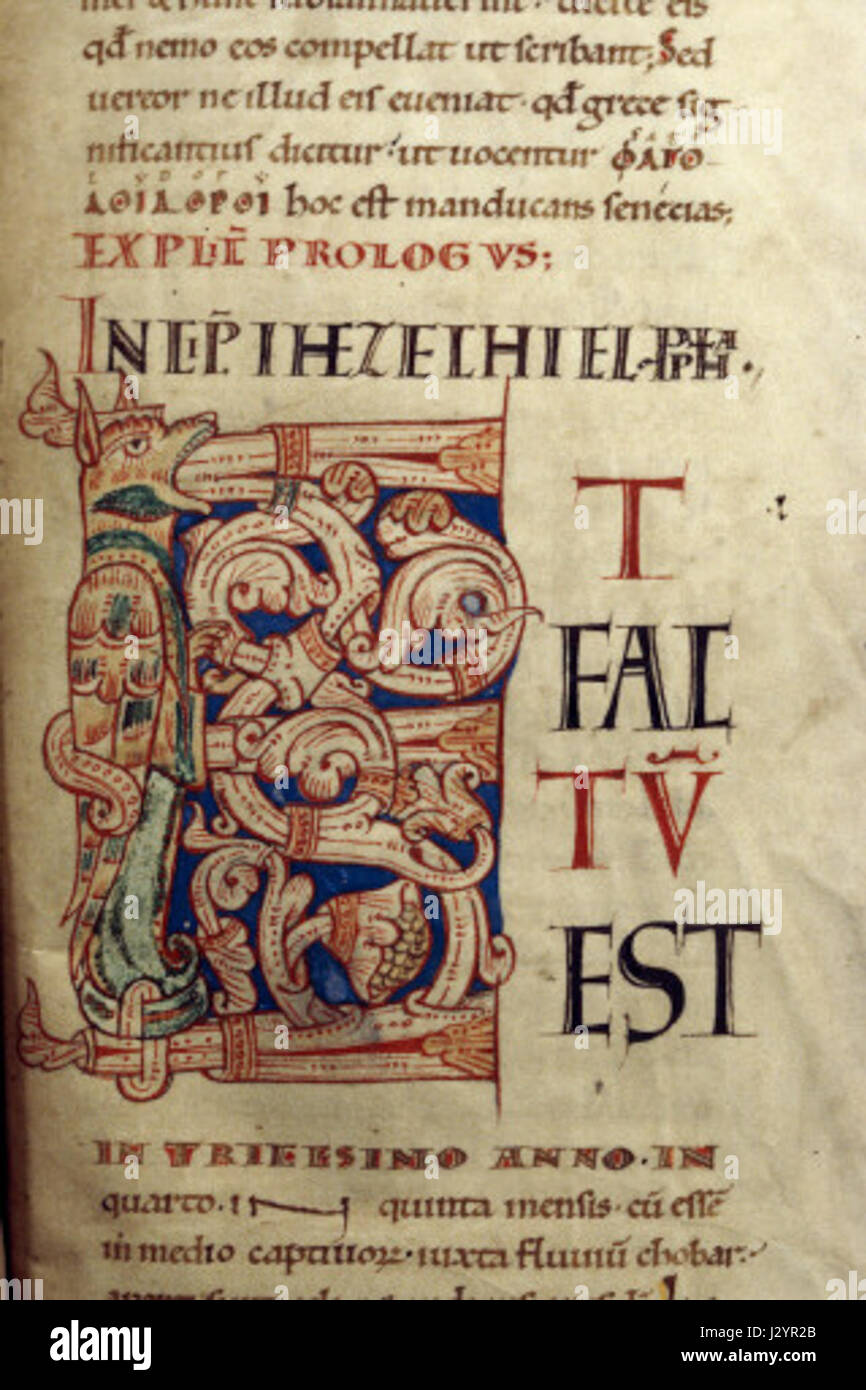 qd̄ nemo eos compellat ut scribant; Sed
uereor ne illud eis eueniat · qd̄ grece sig
nificantius dicitur · ut uocentur ΦΑΓΟ
ΛΟΙΔΟΡΟΙ hoc est manducans senecias;
EXPLIC̄ PROLOGVS;
INCIP̄ IHEZECHIEL PPHA.
ET
FAC
TŪ
EST
IN TRICESIMO ANNO · IN
quarto · in quinta mensis · cū essē
in medio captiuoꝝ · iuxta fluuiū chobar ·
alamy
alamy stock photo
J2YR2B
www.alamy.com